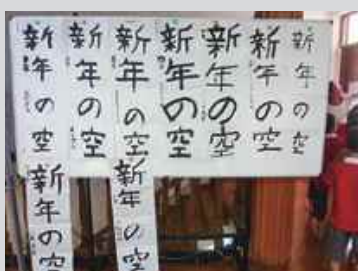 新年の空
新年の空
新年の空
新年の空
新年の空
新年の空
新年の空
新年の空
新年の空